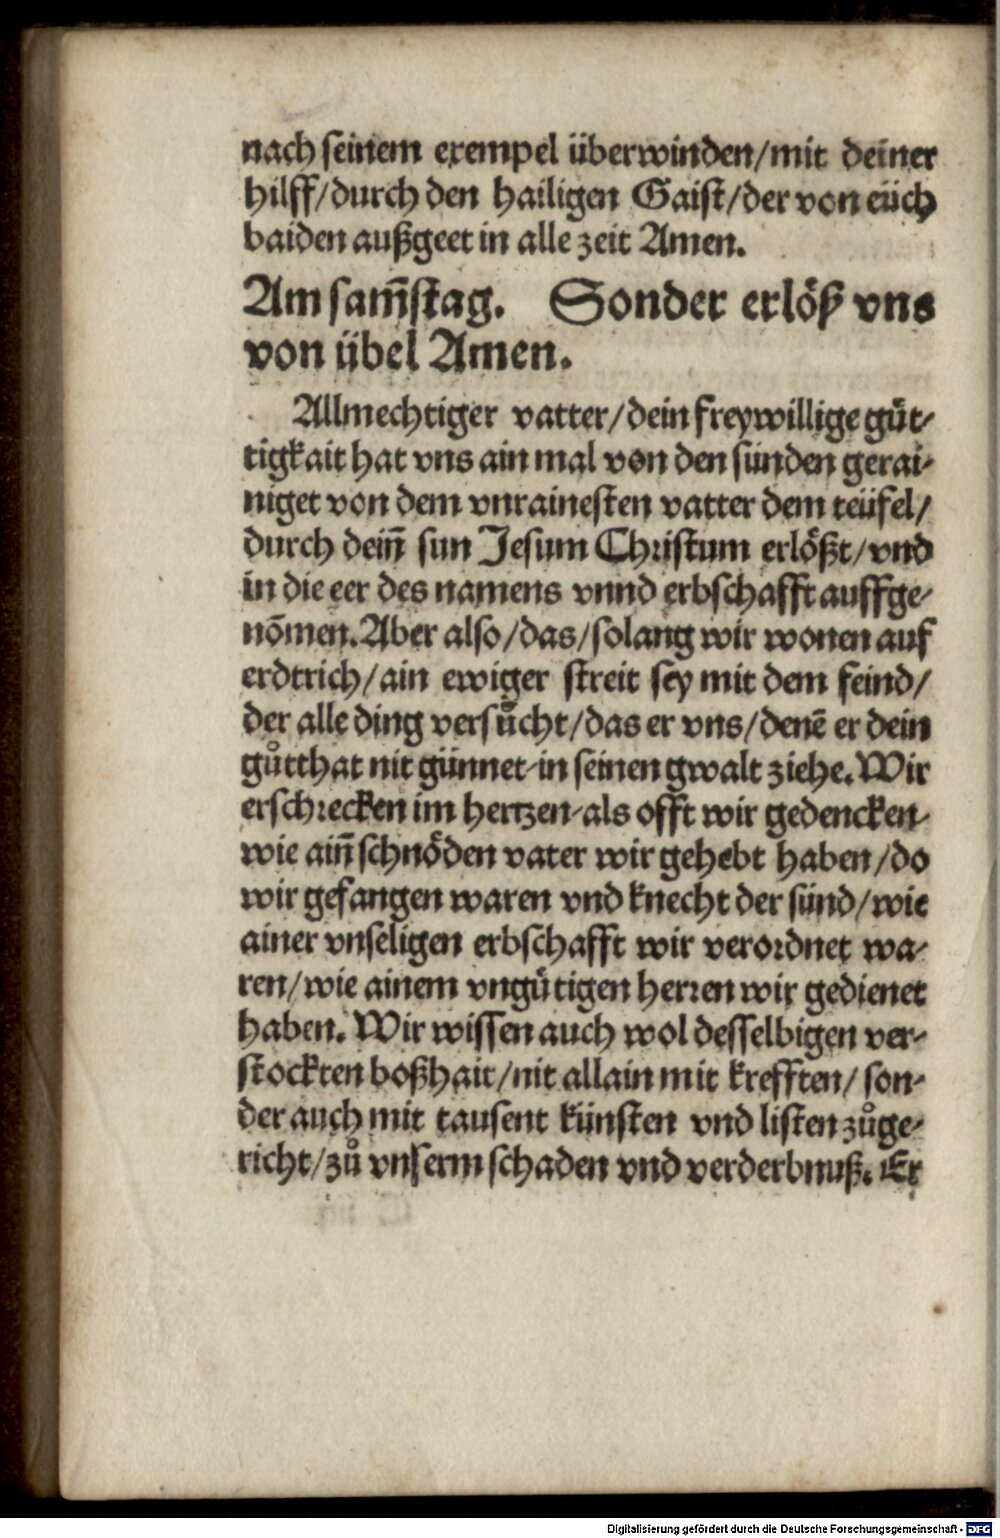 nach seinem exempel überwinden/mit deiner
hilff/durch den hailigen Gaist/der von eüch
baiden außgeet in alle zeit Amen.
Am sam̃stag. Sonder erlöß vns
von übel Amen.
Allmechtiger vatter/dein freywillige guͤt-
tigkait hat vns ain mal von den sünden gerai-
niget von dem vnrainesten vatter dem teüfel/
durch dein̄ sun Jesum Christum erlößt/vnd
in die eer des namens vnnd erbschafft auffge-
nōmen. Aber also/das/solang wir wonen auf
erdtrich/ain ewiger streit sey mit dem feind/
der alle ding versuͦcht/das er vns/denē er dein
guͦtthat nit günnet/in seinen gwalt ziehe. Wir
erschrecken im hertzen/als offt wir gedencken/
wie ain̄ schnöden vater wir gehebt haben/do
wir gefangen waren vnd knecht der sünd/wie
ainer vnseligen erbschafft wir verordnet wa-
ren/wie ainem vnguͤtigen herren wir gedienet
haben. Wir wissen auch wol desselbigen ver-
stockten boßhait/nit allain mit krefften/son-
der auch mit tausent künsten vnd listen zuͦge-
richt/zuͦ vnserm schaden vnd verderbnuß. Er
Digitalisierung gefördert durch die Deutsche Forschungsgemeinschaft - DFG